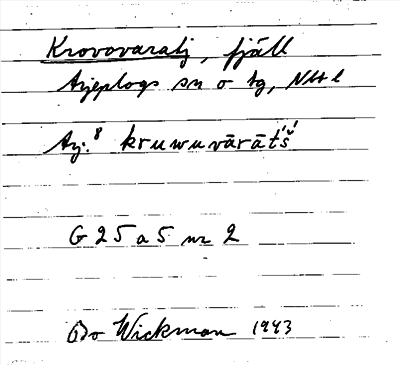 Krovovaratj, fjäll
Arjeplogs sn o tg, Nbt l
Arj.⁸ kruwuvārāt́š́
G 25 a 5 nr 2
Bo Wickman 1943